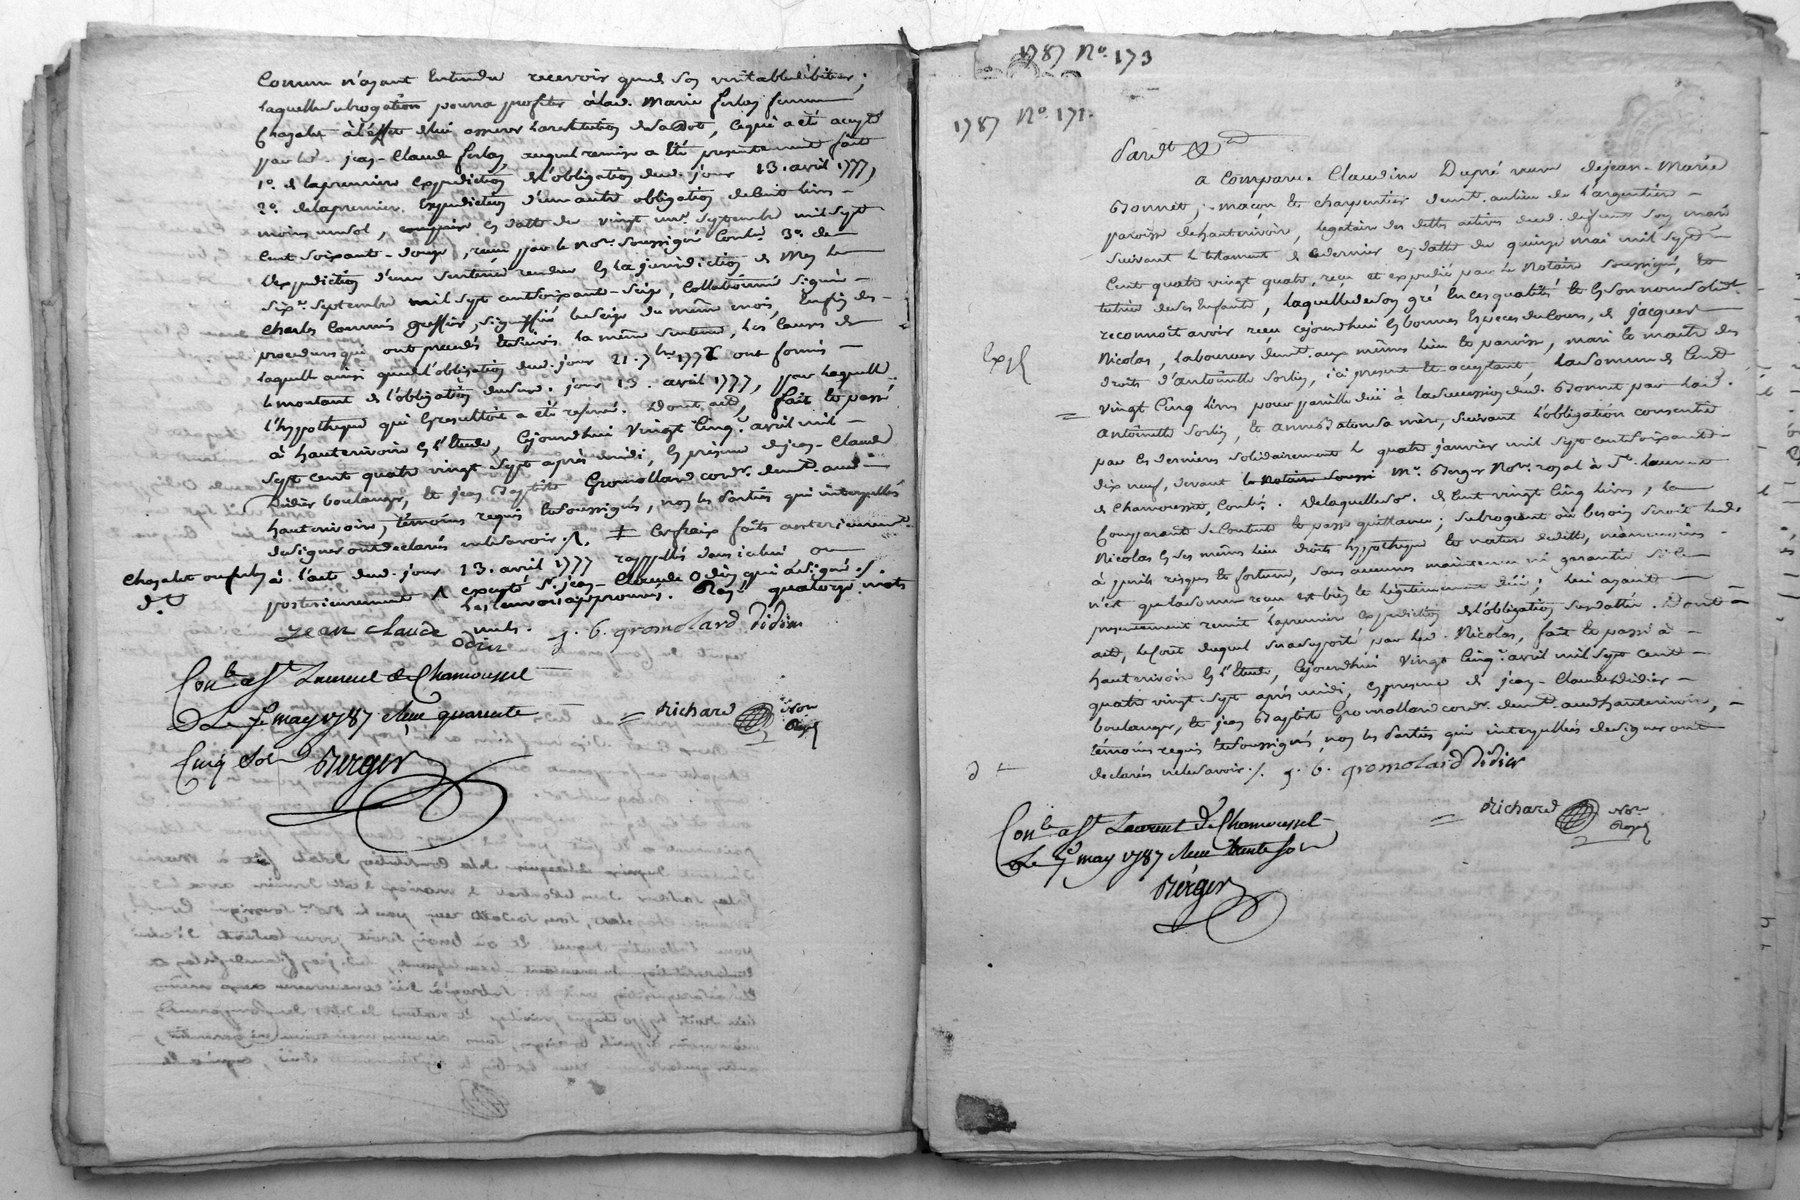 Comme n'ayant Entendu recevoir que de son veritable debiteur;
laquelle subrogation pourra profiter à lad. Marie ferlay femme
Chazalet à l'effet de lui assurer la restitution de sa dot, ce qui a été accepté
par led. jean-Claude ferlay, auquel remise a été presentement fait
1°. de la premiere expedition de l'obligation dud. jour 13. avril 1777,
2°. de la premiere Expedition d'une autre obligation de huit livres
moins un sol, en datte du vingt un septembre mil sept
Cent soixante-douze, reçue par le no.re soussigné Contr. 3°. de
l'expedition d'une sentence rendue en la jurisdiction de Mey le
six septembre mil sept cent soixante-seize, Collationné signé
Charles Commis greffier, signiffié le seize du même mois, Enfin des
procedures qui ont precedé et suivi la même sentence, les causes de
laquelle ainsi que de l'obligation dud. jour 21. 7bre 1772 ont formé
le montant de l'obligation dud. jour 13. avril 1777, par laquelle
l'hypotheque qui En resultoit a été reservé. Dont acte, fait et passé
à hauterivoire En l'Etude, Cejourdhui vingt Cinq avril mil
sept cent quatre vingt sept après midi, En presence de jean-Claude
Didier boulanger, et jean Baptiste Gromollard cord.r demt. aud.
hauterivoire, témoins requis et soussignés, non les Parties qui interpellés
de signer ont declarés ne le savoir ./. ‡ les fraix faits anterieurement
Chazalet ou ferlay à l'acte dud. jour 13. avril 1777 rappellés dans icelui ou
d.t posterieurement Λ excepté S.r jean-Claude Odin qui a signé ./.
les renvois approuvés. Rayé quatorze mots
nuls.
jean claude odin j. b. gromolard Didier
Con.lé à St Laurent de Chamousset
Le 7e may 1787 Reçu quarente
Cinq sols Berger
= Richard No.re Royal
1787 No. 173
1787 No. 171.
Pardt
a Comparu Claudine Dupré veuve de jean-Marie
Bonnet, maçon et charpentier demt. au lieu de l'argentiere
paroisse de hauterivoire, legataire des dettes actives dud. defunt son mari
suivant le testament de ce dernier en datte du quinze mai mil sept
Cent quatre vingt quatre, reçu et expedié par le Notaire soussigné, et
tutrice de ses Enfants, laquelle de son gré En ces qualités et En son nom solid.t
reconnoit avoir reçu cejourdhui En bonnes Especes du Cours, de jacques
Nicolas, Laboureur demt. aux mêmes lieu et paroisse, mari et maitre des
droits d'antoinette Sorlin, ici present et acceptant, la somme de Cent
vingt Cinq livres pour pareille duë à la succession dud. Bonnet par lad.
antoinette Sorlin, et anne Baton sa mère, suivant l'obligation consentie
par ces dernieres solidairement le quatre janvier mil sept cent soixante-
dix neuf, devant le Notaire soussi Me. Berger No.re royal à St. laurent
de Chamousset, Contr. De laquelle so.e de Cent vingt Cinq livres, la
Comparante se Contente et passe quittance; subrogeant où besoin seroit led.
Nicolas En ses mêmes lieu droits hypotheque et nature de dette, néanmoins
à perils risques et fortune, sans aucune maintenue ni garantie si ce
n'est que la somme reçue est bien et legitimement düe; lui ayant
presentement remis la premiere expedition de l'obligation susdattée. Dont
acte, le coût duquel sera supporté par led. Nicolas, fait et passé à
hauterivoire En l'Etude, Cejourdhui Vingt Cinq avril mil sept cent
quatre vingt-sept après midi, En presence de jean-Claude Didier
boulanger, et jean Baptiste Gromollard cord.r demt. aud. hauterivoire,
témoins requis et soussignés, non les Parties qui interpellées de signer ont
declarés ne le savoir ./. j. b. gromolard Didier
Con.lé à St Laurent de Chamousset
Le 7e may 1787 Reçu trente sols
Berger
= Richard No.re Royal